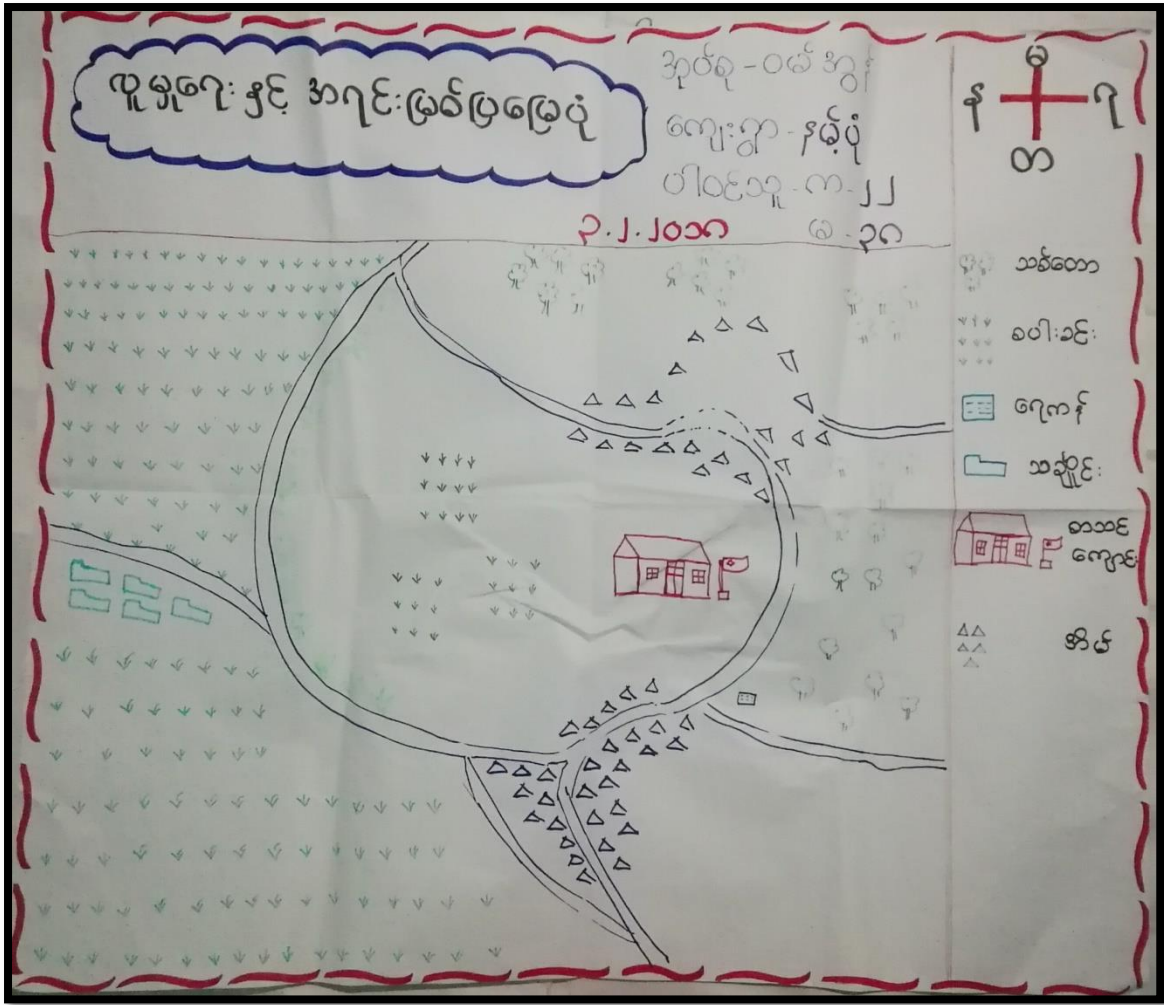 လူမှုရေးနှင့် အရင်းမြစ်ပြမြေပုံ
အုပ်စု - ဝမ်အွန်
ကျေးရွာ - နမ့်ပုံ
ပါဝင်သူ - က - ၂၂
မ - ၃၈
၃.၂.၂၀၁၈
မ
န
ရ
တ
သစ်တော
စပါးခင်း
ရေကန်
သချႋုင်း
စာသင်
ကျောင်း
အိမ်